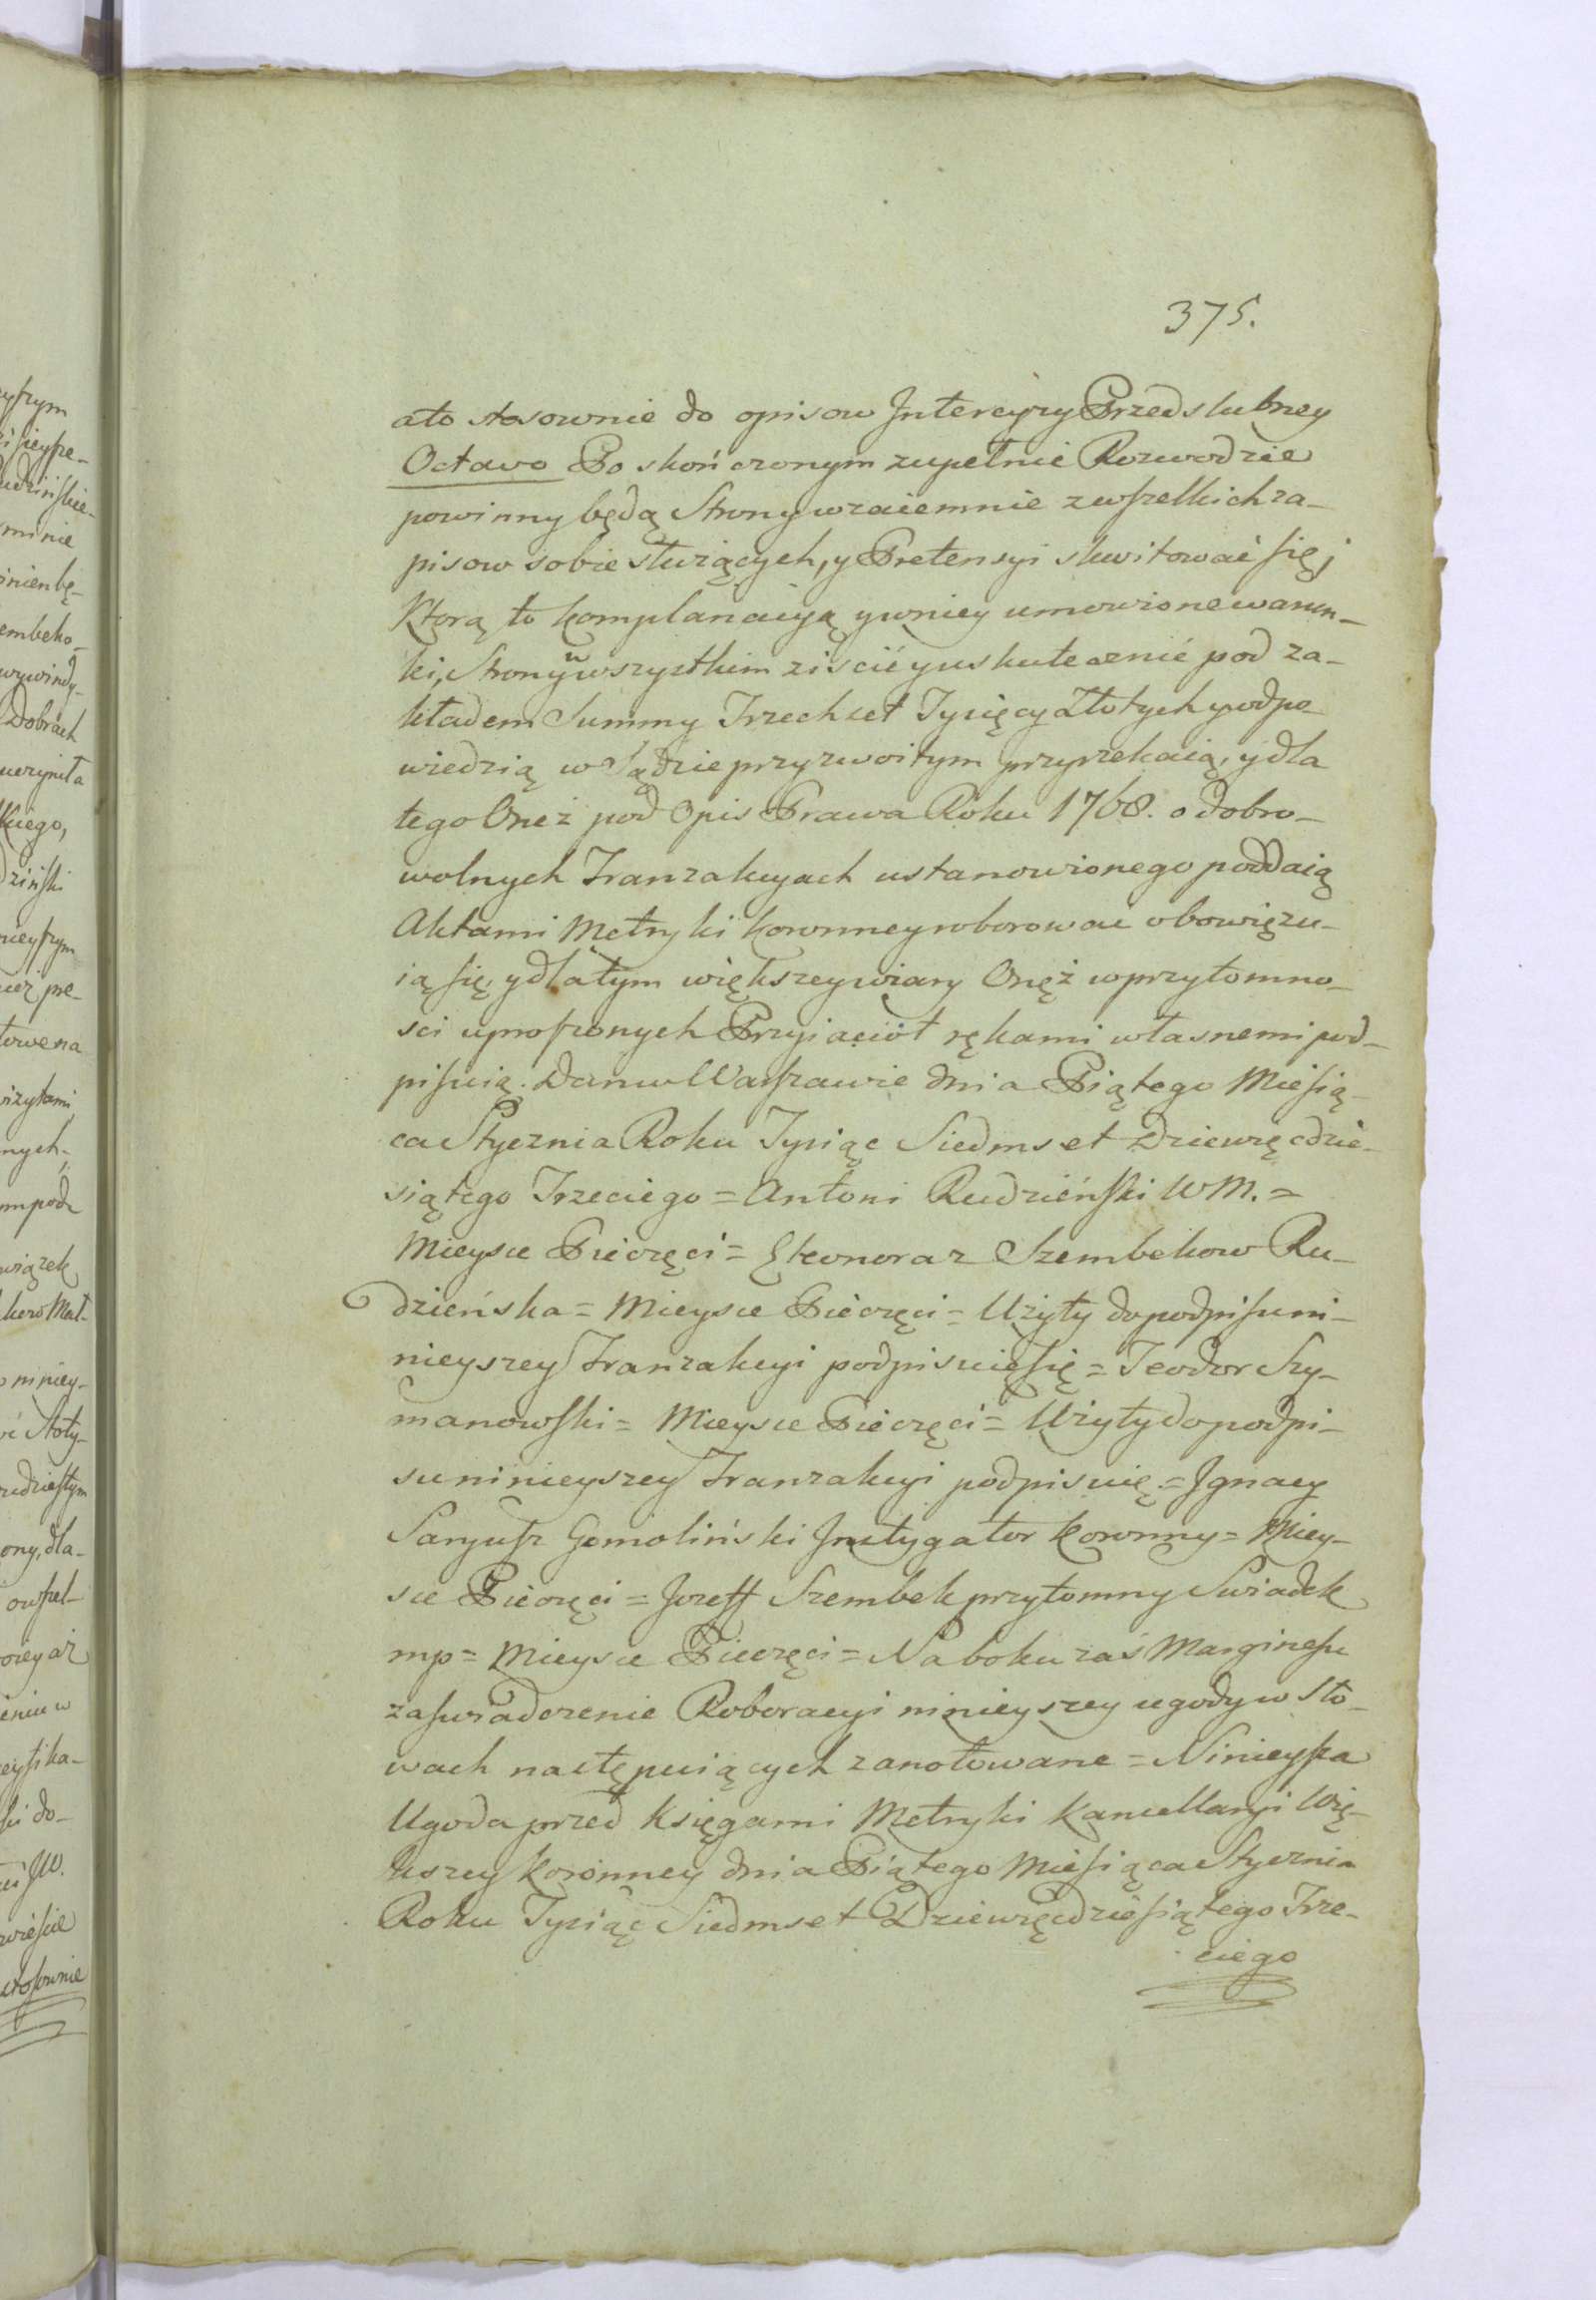 375.
ato stosownie do opisow Intercyzy Przedslubney
Octavo Po skończonym zupełnie Rozwodzie
powinny będą Strony wzaiemnie z wszelkich za-
pisow sobie służących, y Pretensyi skwitować się;
Którą to komplanacyą y w niey umowione warun-
ki, Strony w wszystkim ziścić y uskutecznić pod za-
kładem Summy Trzechset Tysięcy Złotych y odpo-
wiedzią w Sądzie przyzwoitym przyrzekaią, y dla
tego Oneż pod Opis Prawa Roku 1768. o dobro-
wolnych Tranzakcyach ustanowionego poddaią
Aktami Metryki koronney roborować obowięzu-
ią się, y dla tym większey wiary Onęż w przytomno-
sci uproszonych Przyiaciół rękami własnemi pod-
pisuią. Dan w Warszawie dnia Piątego Miesią-
ca Stycznia Roku Tysiąc Siedmset Dziewięcdzie-
siątego Trzeciego = Antoni Rudzieński WM. =
Mieysce Pieczęci = Eleonora z Szembekow Ru-
dzieńska = Mieysce Pieczęci = Użyty do podpisu ni-
nieyszey Tranzakcyi podpisuię się = Teodor Szy-
manowski = Mieysce Pieczęci = Użyty do podpi-
su ninieyszey Tranzakcyi podpisuię = Ignacy
Saryusz Gomoliński Instygator koronny = Miey-
sce Pieczęci = Jozeff Szembek przytomny Swiadek
mp = Mieysce Pieczęci = Na boku zaś Marginesu
zaświadczenie Roboracyi ninieyszey ugody w sło-
wach następuiących zanotowane = Ninieysza
Ugoda przed księgami Metryki Kancellaryi Wię-
kszey koronney dnia Piątego Miesiąca Stycznia
Roku Tysiąc Siedmset Dziewięcdziesiątego Trze-
ciego